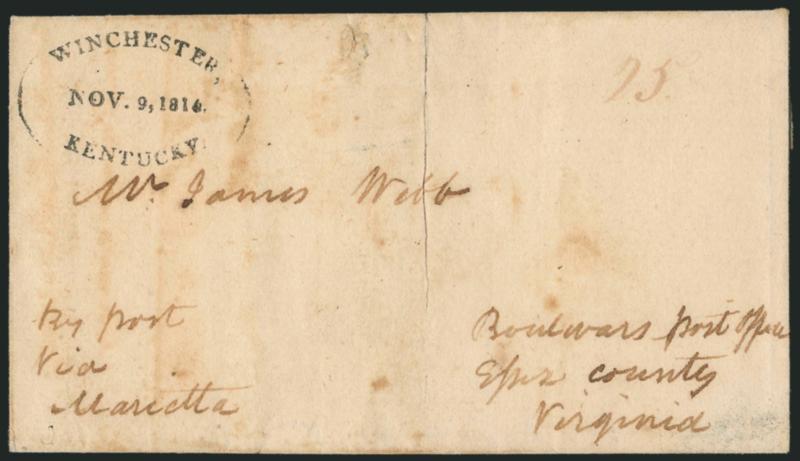 WINCHESTER,
NOV. 9, 1814.
KENTUCKY.
Mr. James Webb
By post
Via
Marietta
Boulwars post office
Essex county
Virginia